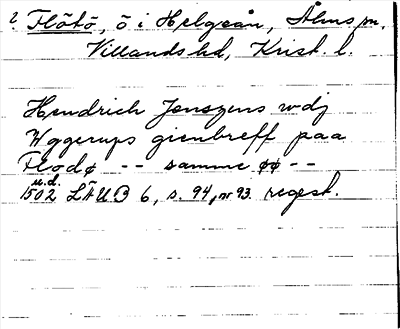 ? Flötö, ö i Helgeån, Åhus sn,
Villands hd, Krist. l.
Hendrich Jenszens vdj
Wggerups gienbreff paa
Flodø -- samme øø --
u.d.
1502 LÄUB 6, s. 94, nr 93. regest.